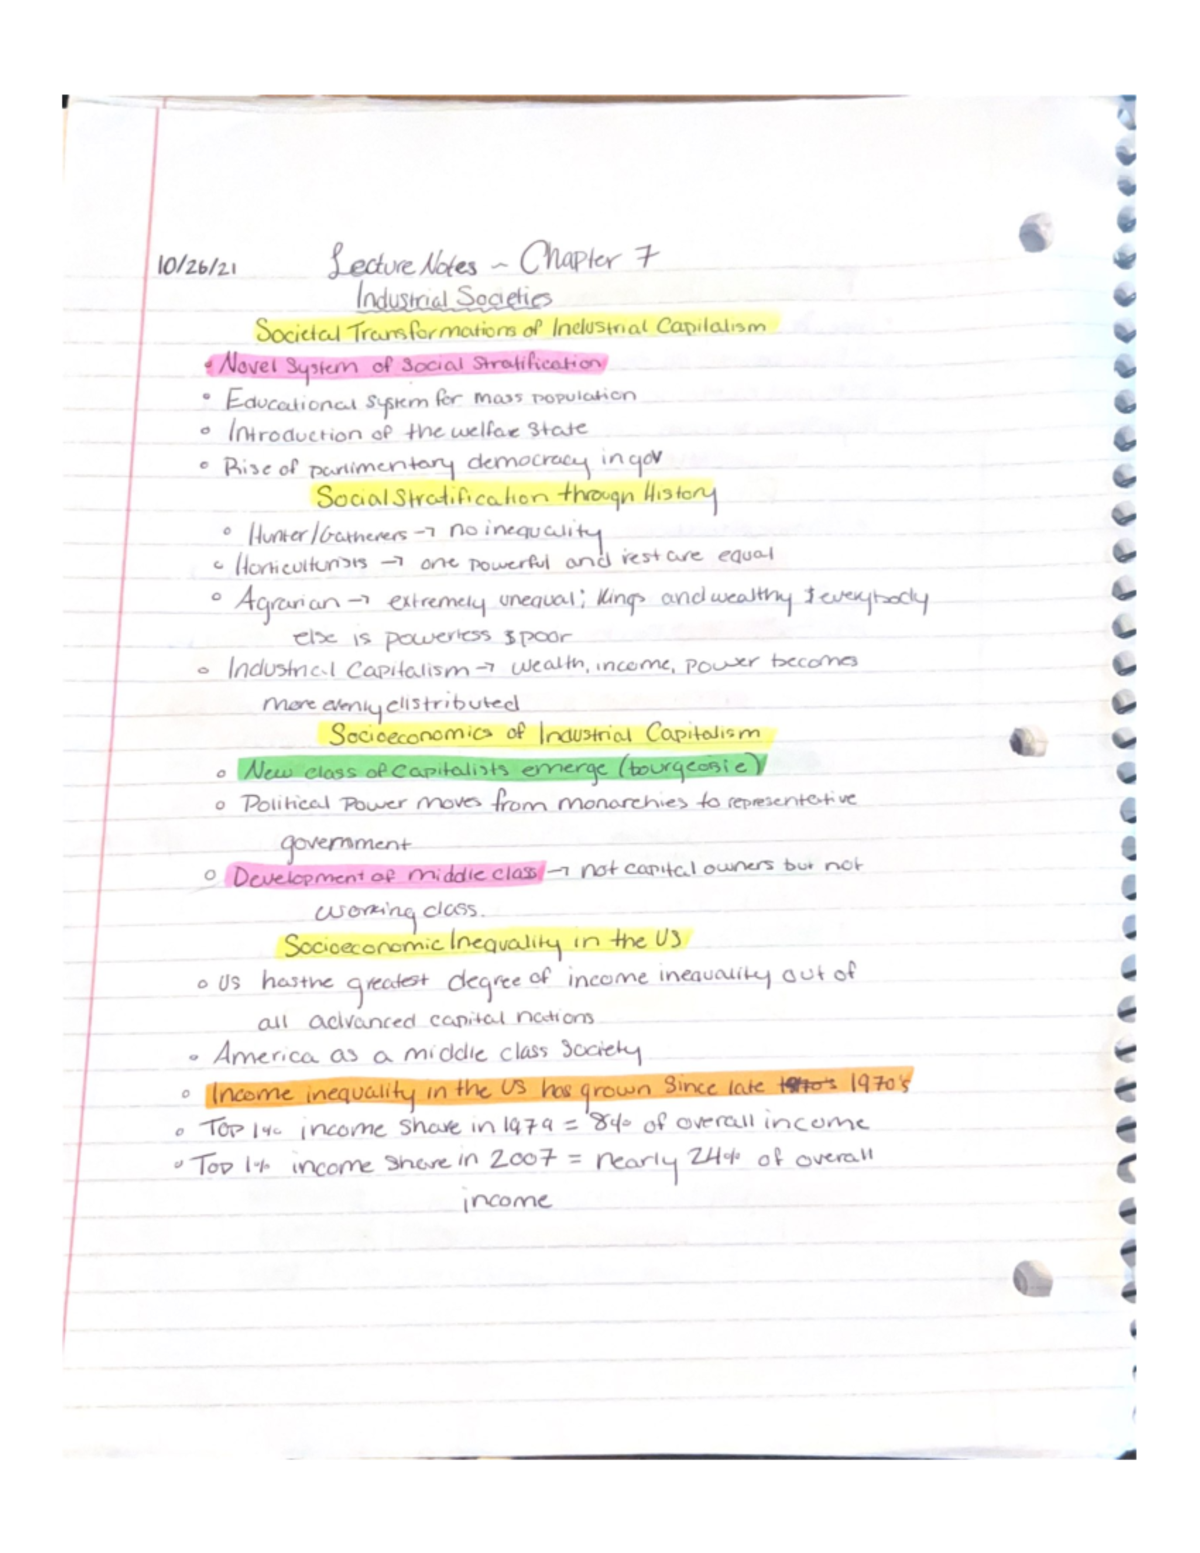 10/26/21 Lecture Notes ~ Chapter 7
Industrial Societies
Societal Transformations of Industrial Capitalism
• Novel System of Social Stratification
• Educational System for mass population
◦ Introduction of the welfare State
◦ Rise of parlimentary democracy in gov
Social Stratification through History
◦ Hunter/Gatherers → no inequality
◦ Horticulturists → one powerful and rest are equal
◦ Agrarian → extremely unequal; Kings and wealthy & everybody
else is powerless & poor
◦ Industrial Capitalism → wealth, income, power becomes
more evenly distributed
Socioeconomics of Industrial Capitalism
◦ New class of Capitalists emerge (bourgeosie)
◦ Political Power moves from monarchies to representative
government
◦ Development of middle class → not capital owners but not
working class.
Socioeconomic Inequality in the US
◦ US has the greatest degree of income inequality out of
all advanced capital nations
• America as a middle class Society
◦ Income inequality in the US has grown Since late 1970's
◦ Top 1% income Share in 1979 = 8% of overall income
◦ Top 1% income Share in 2007 = nearly 24% of overall
income